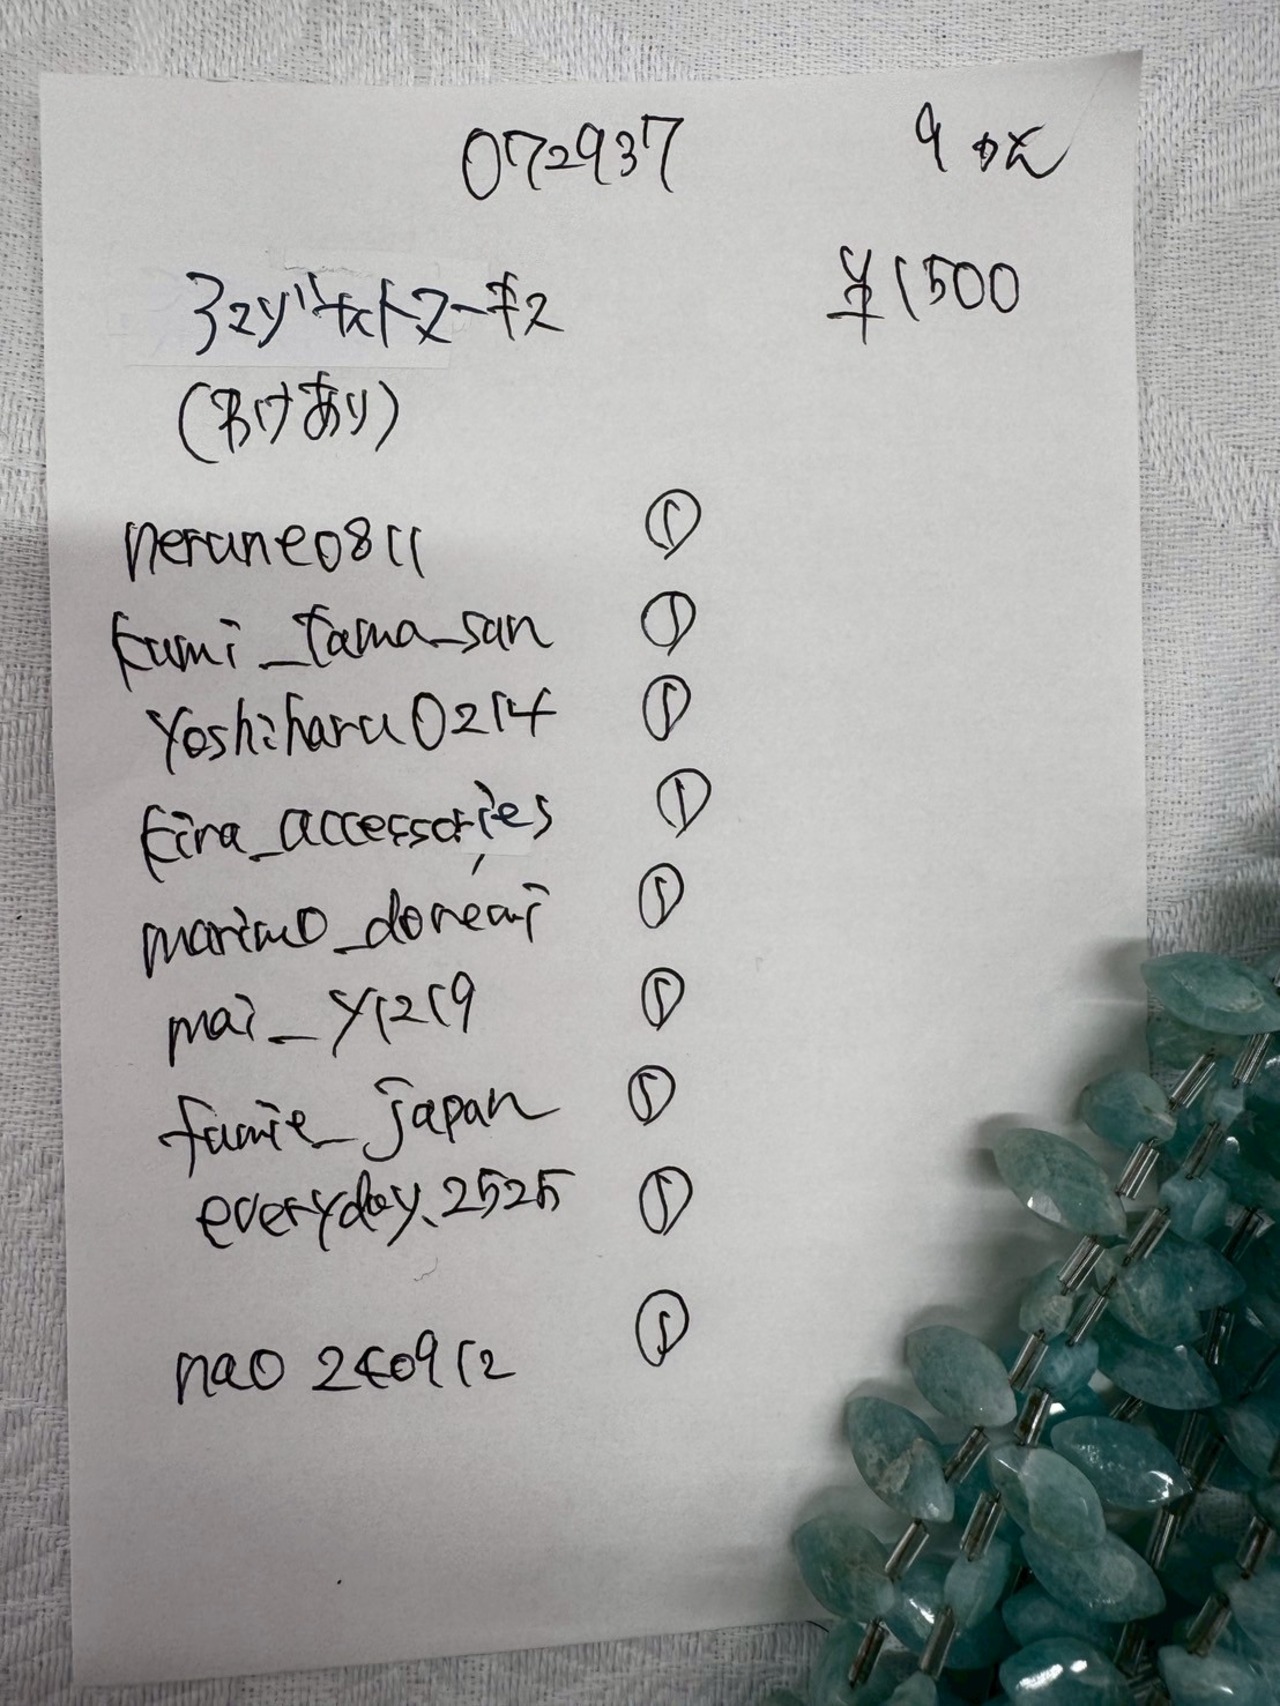 072937 9
¥1500
(わけあり)
nerune0811 ①
kumi_tama_san ①
yoshiharu0214 ①
kira_accessories ①
marimo_doremi ①
mai_y1219 ①
fumie_japan ①
everyday.2525 ①
nao 240912 ①